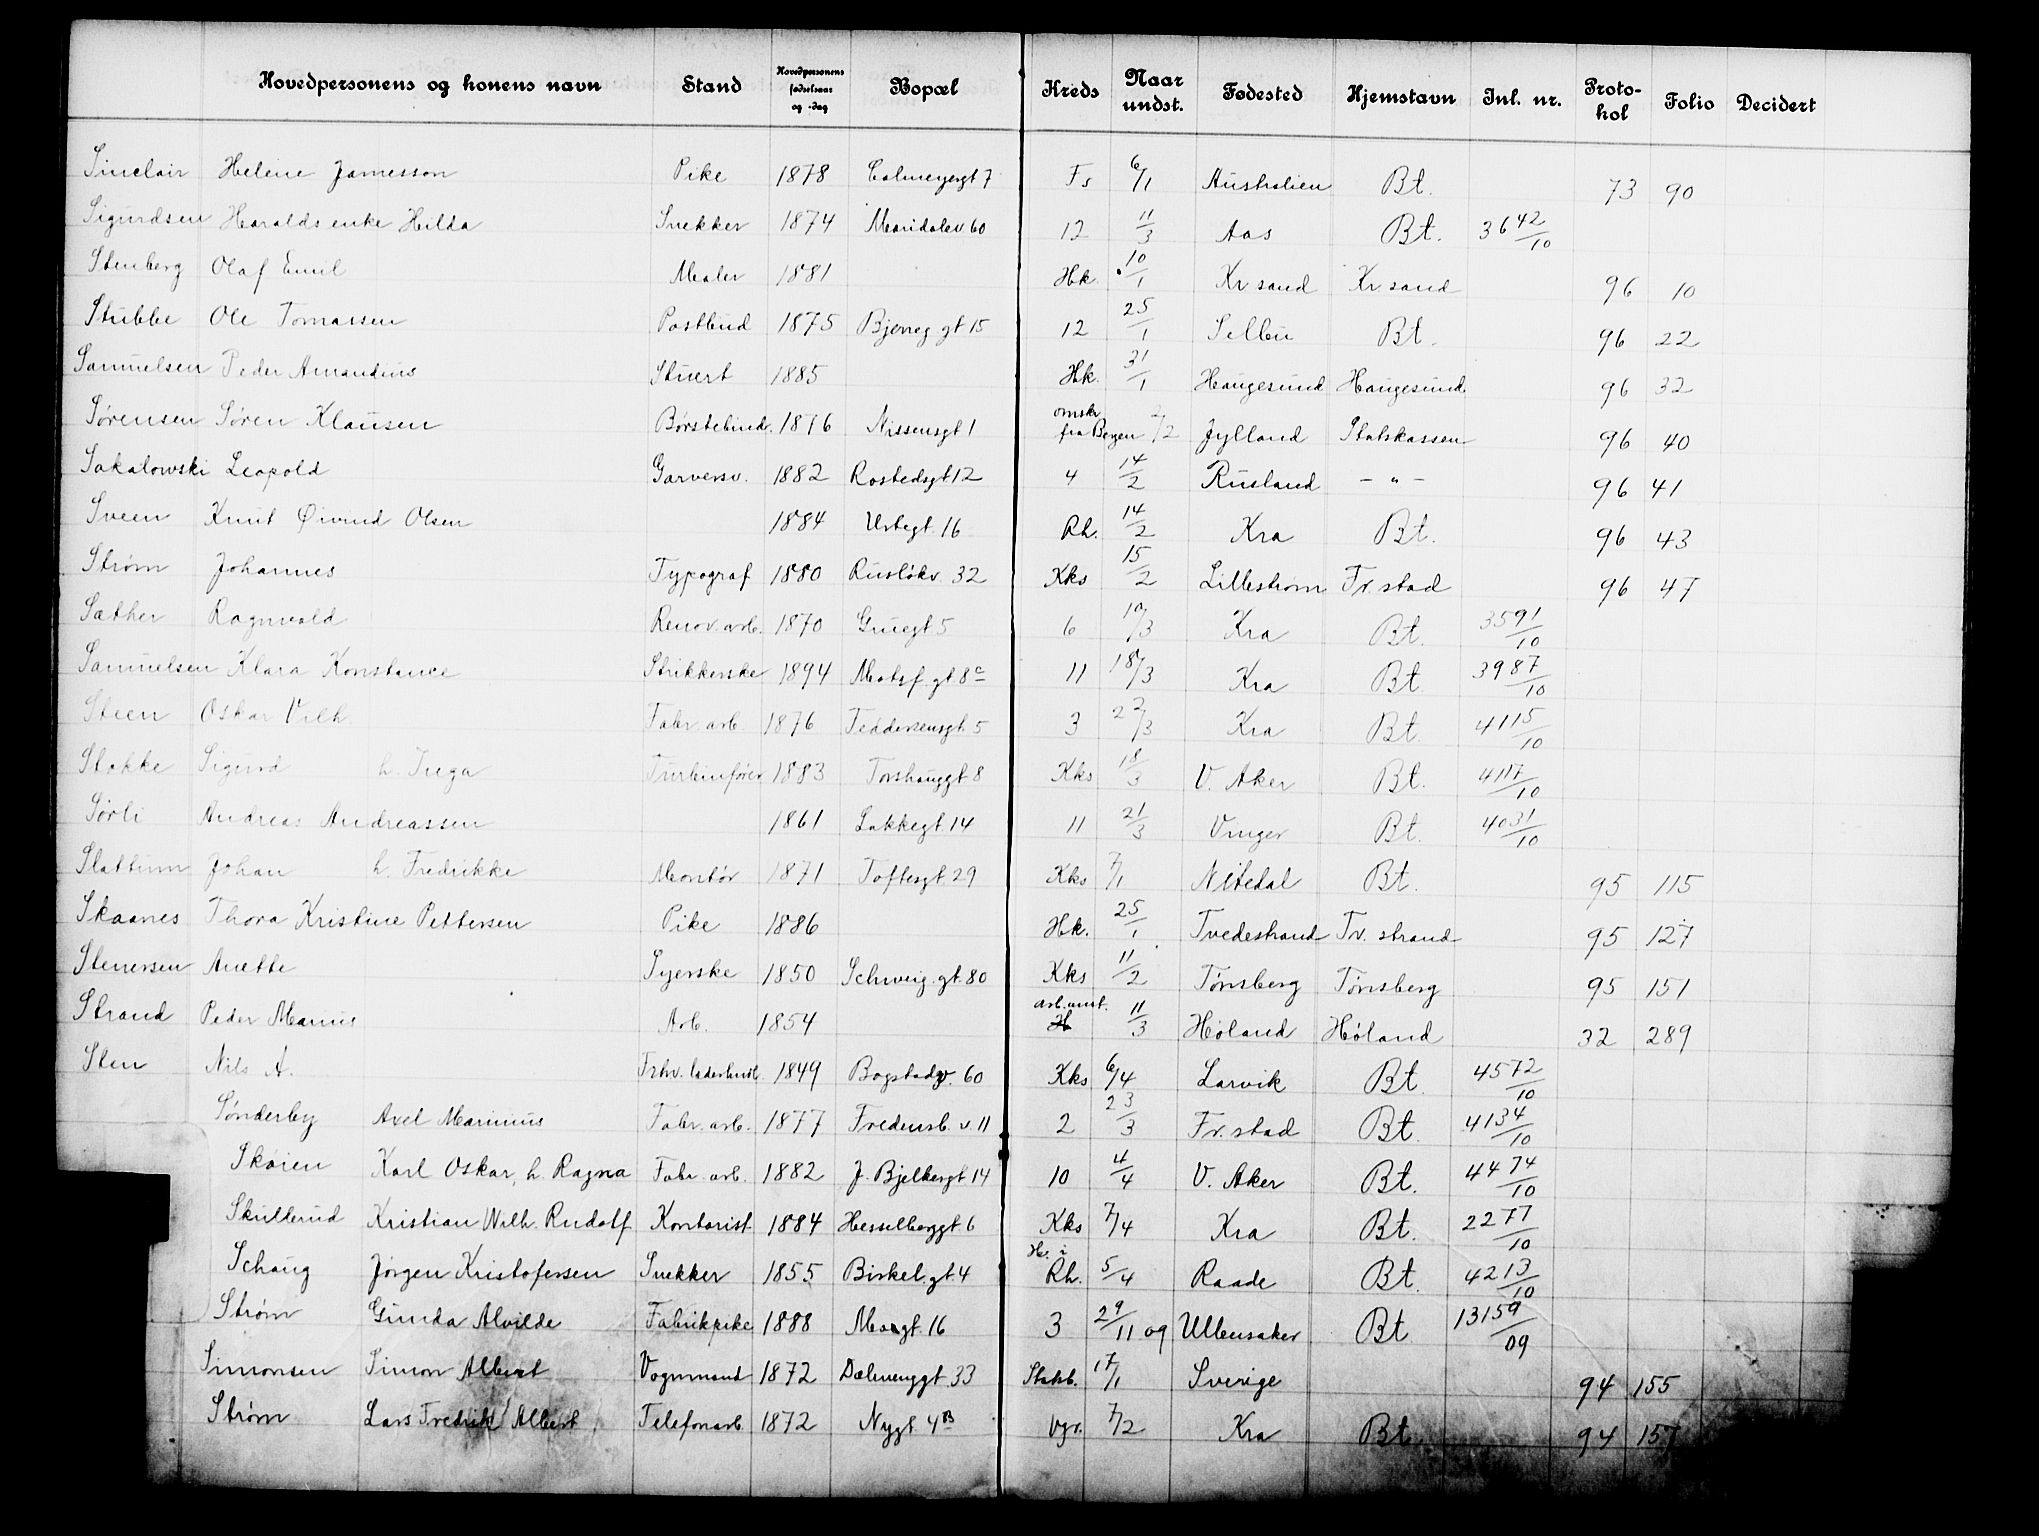 Hovedpersonens og konens navn Stand Hovedpersonens fødselsaar og -dag Bopæl Kreds Naar undst. Fødested Hjemstavn Inl. nr. Proto-kol Folio Decidert
Sinclair Helene Jamesson Pike 1878 Calmeyergt 7 Fs 6/1 Australien Bt. 73 90
Sigurdsen Haralds enke Hilda Snekker 1874 Maridalsv 60 12 11/3 Aas Bt. 3642/10
Stenberg Olaf Emil Maler 1881 Hk. 10/1 Kr sand Kr sand 96 10
Stubbe Ole Tomassen Postbud 1875 Bjerreg gt 15 12 25/1 Selbu Bt. 96 22
Samuelsen Peder Amandius Stuert 1885 Hk. 31/1 Haugesund Haugesund 96 32
Sørensen Søren Klausen Børstebind. 1876 Nissensgt 1 omskr fra Bergen 2/2 Jylland Statskassen 96 40
Sakalowski Leopold Garversv. 1882 Rostedsgt 12 4 14/2 Rusland - " - 96 41
Sveen Knut Øivind Olsen 1884 Urtegt. 16 Rh. 14/2 Kra Bt. 96 43
Strøm Johannes Typograf 1880 Rusløkv. 32 Kks 15/2 Lillestrøm Fr. stad 96 47
Sæther Ragnvald Renov. arb. 1870 Gruegt 5 6 10/3 Kra Bt. 3591/10
Samuelsen Klara Konstance Strikkerske 1894 Motzf. gt 8c 11 18/3 Kra Bt 3987/10
Steen Oskar Vilh. Fabr. arb. 1876 Feddersensgt 5 3 22/3 Kra Bt. 4115/10
Stokke Sigurd h. Inga Turbinfører 1883 Torshauggt 8 Kks 18/3 V. Aker Bt. 4117/10
Sørli Andreas Andreassen 1861 Lakkegt 14 11 21/3 Vinger Bt. 4031/10
Slattum Johan h. Fredrikke Montør 1871 Toftesgt. 29 Kks 7/1 Nitedal Bt. 95 115
Skaanes Thora Kristine Pettersen Pike 1886 Hk. 25/1 Tvedestrand Tv. strand 95 127
Stenersen Anette Syerske 1850 Schweig. gt. 80 Kks 11/2 Tønsberg Tønsberg 95 151
Strand Peder Marius Arb. 1854 arb. anst. 11/3 Høland Høland 32 289
Sten Nils A. Frhv. 1849 Bogstadv. 60 Kks 6/4 Larvik Bt 4572/10
Sønderby Axel Marinius Fabr. arb. 1877 Fredensb. v. 11 2 23/3 Fr. stad Bt. 4134/10
Skøien Karl Oskar, h. Ragna Fabr. arb. 1882 J. Bjelkesgt 14 10 4/4 V. Aker Bt. 4474/10
Skullerud Kristian Wilh. Rudolf Kontorist. 1884 Hesselberggt. 6 Kks 7/4 Kra Bt. 2277/10
Schaug Jørgen Kristofersen Snekker 1855 Birkel. gt. 4 Rh. 5/4 Raade Bt. 4213/10
Strøm Gunda Alvilde Fabrikpike 1888 16 3 29/11 09 Ullensaker Bt 13159/09
Simonsen Simon Albert Vognmand 1872 Dælenenggt. 33 17/1 Sverige 94 155
Strøm Lars Fredrik Albert Telefonarb. 1872 Nygt 4B Vgr. 7/2 Kra Bt 94 157